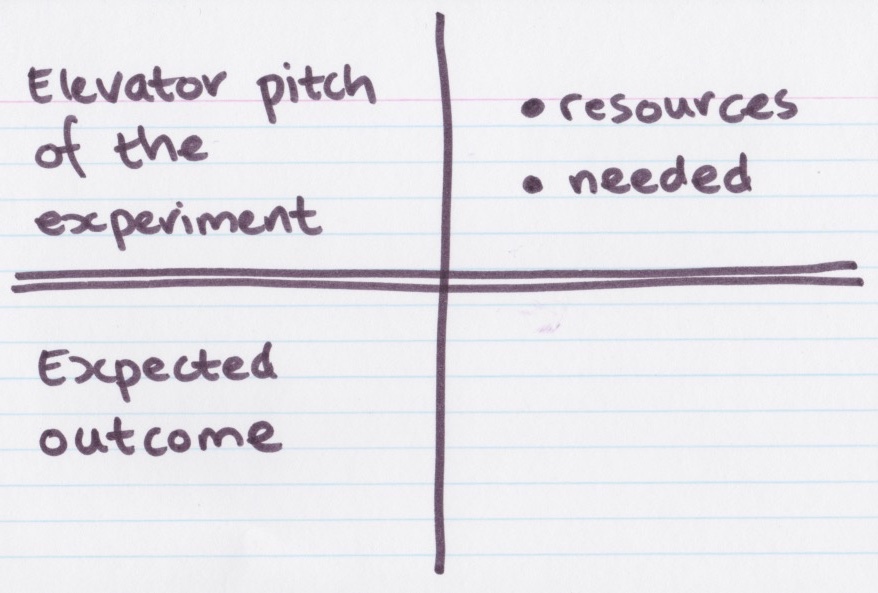 Elevator pitch
of the
experiment
• resources
• needed
Expected
outcome